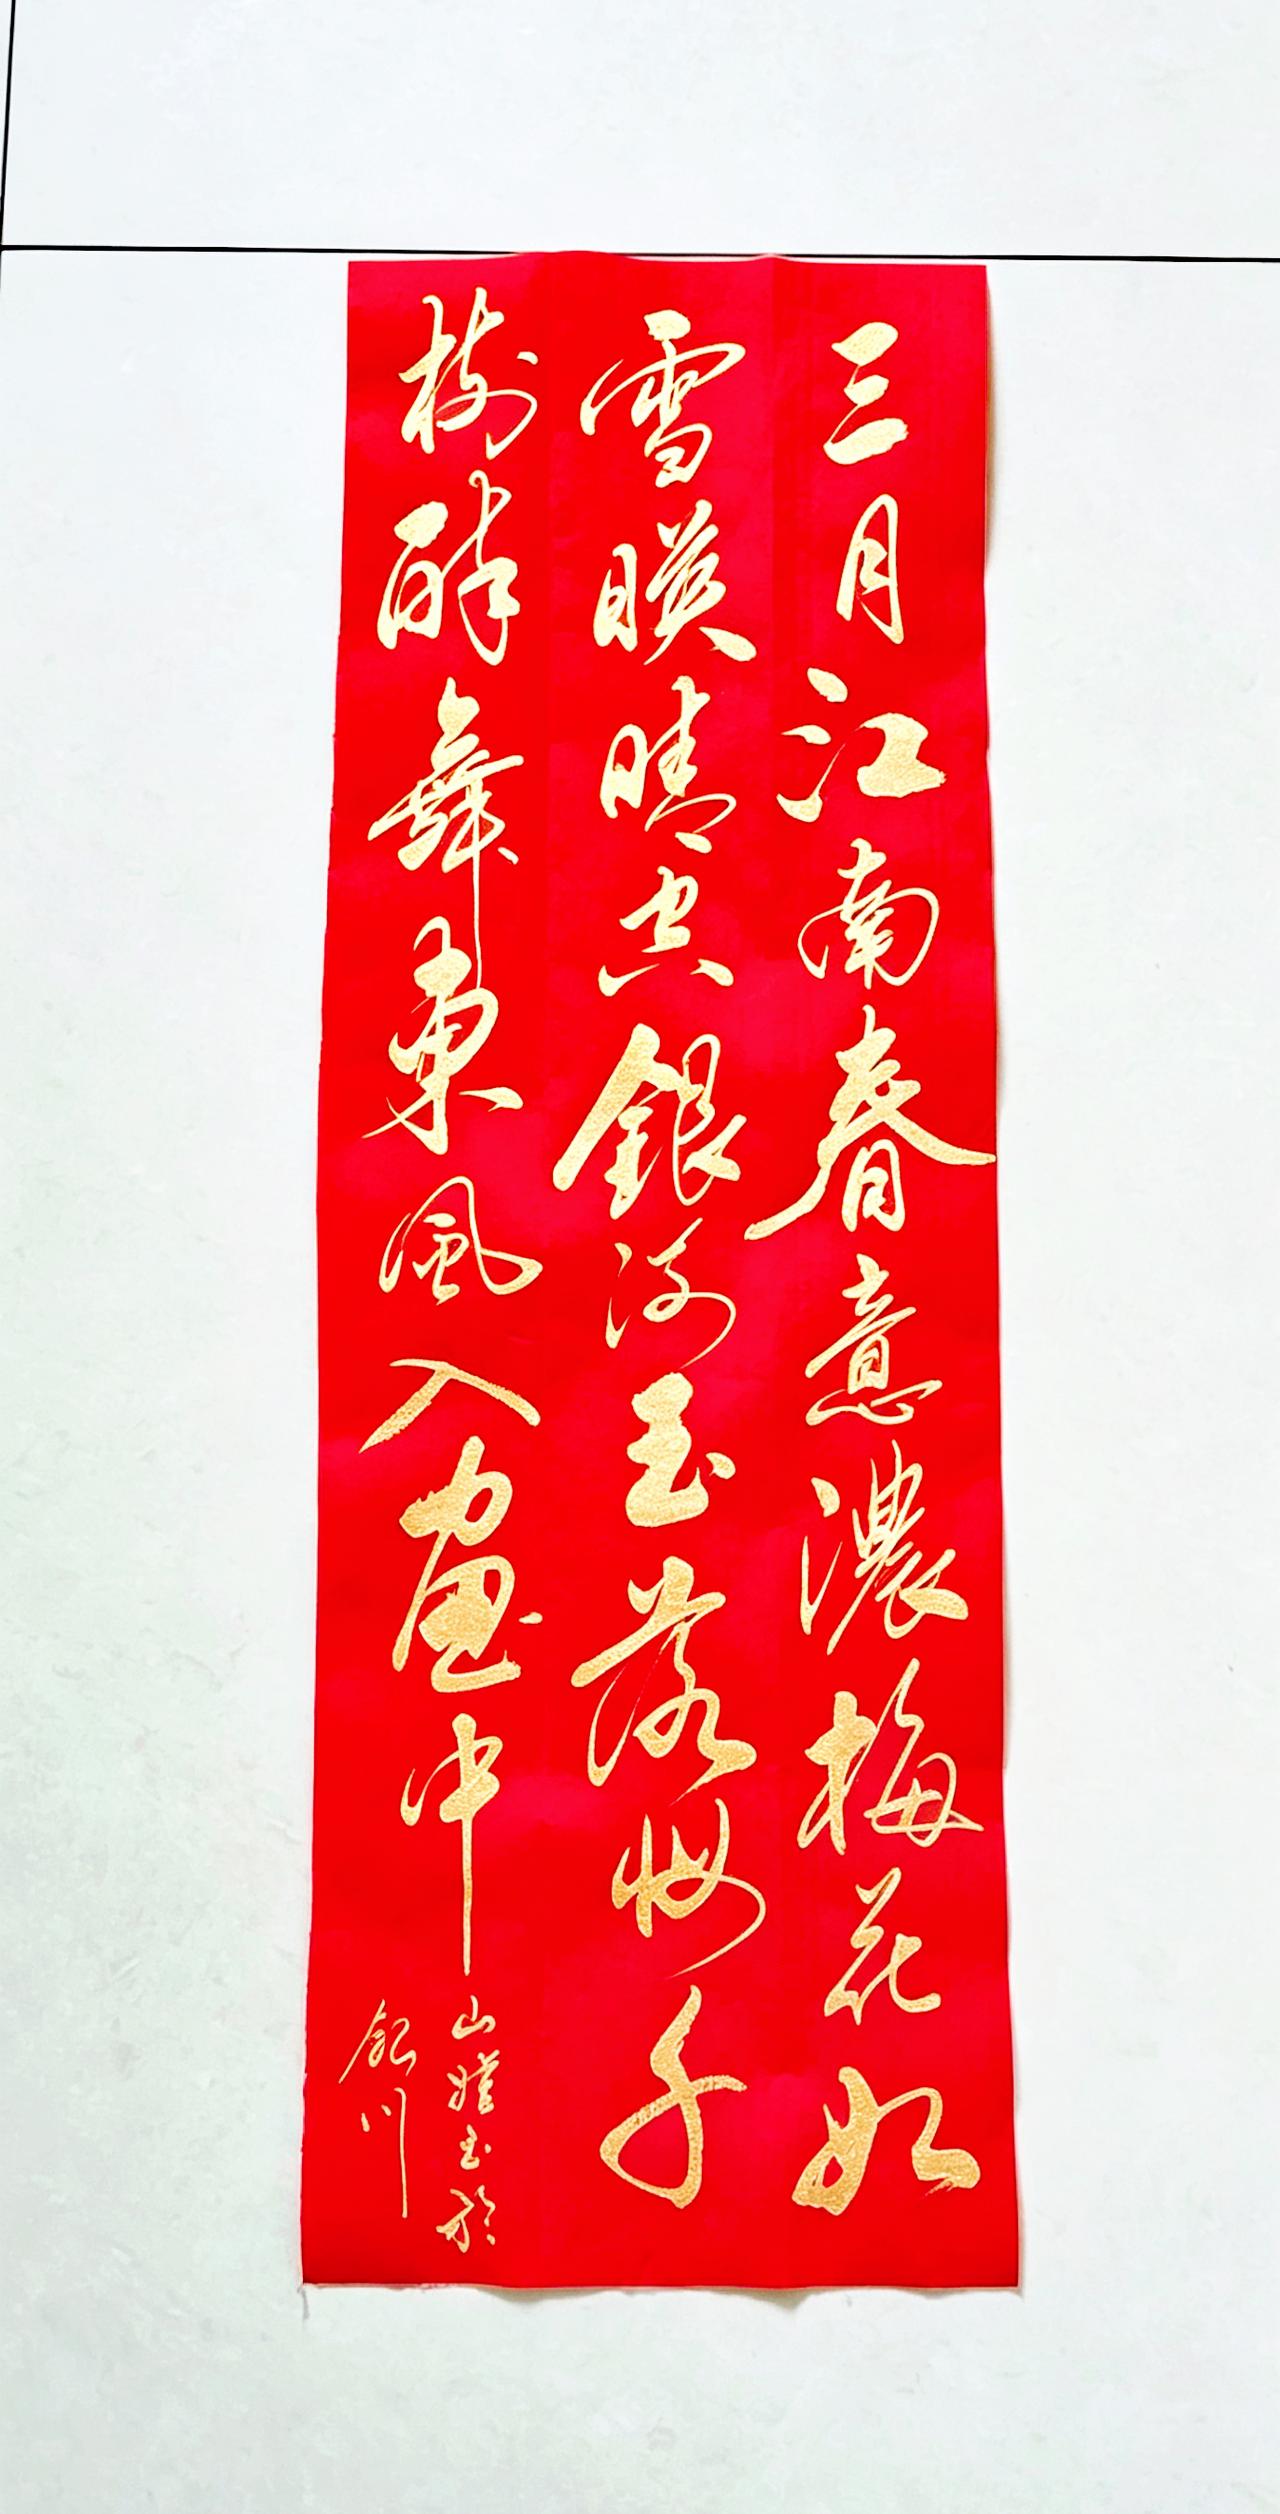 三月江南春意濃梅花如
雪暎晴空銀河玉落妝千
樹醉舞東風入畫中
山書於
銀川